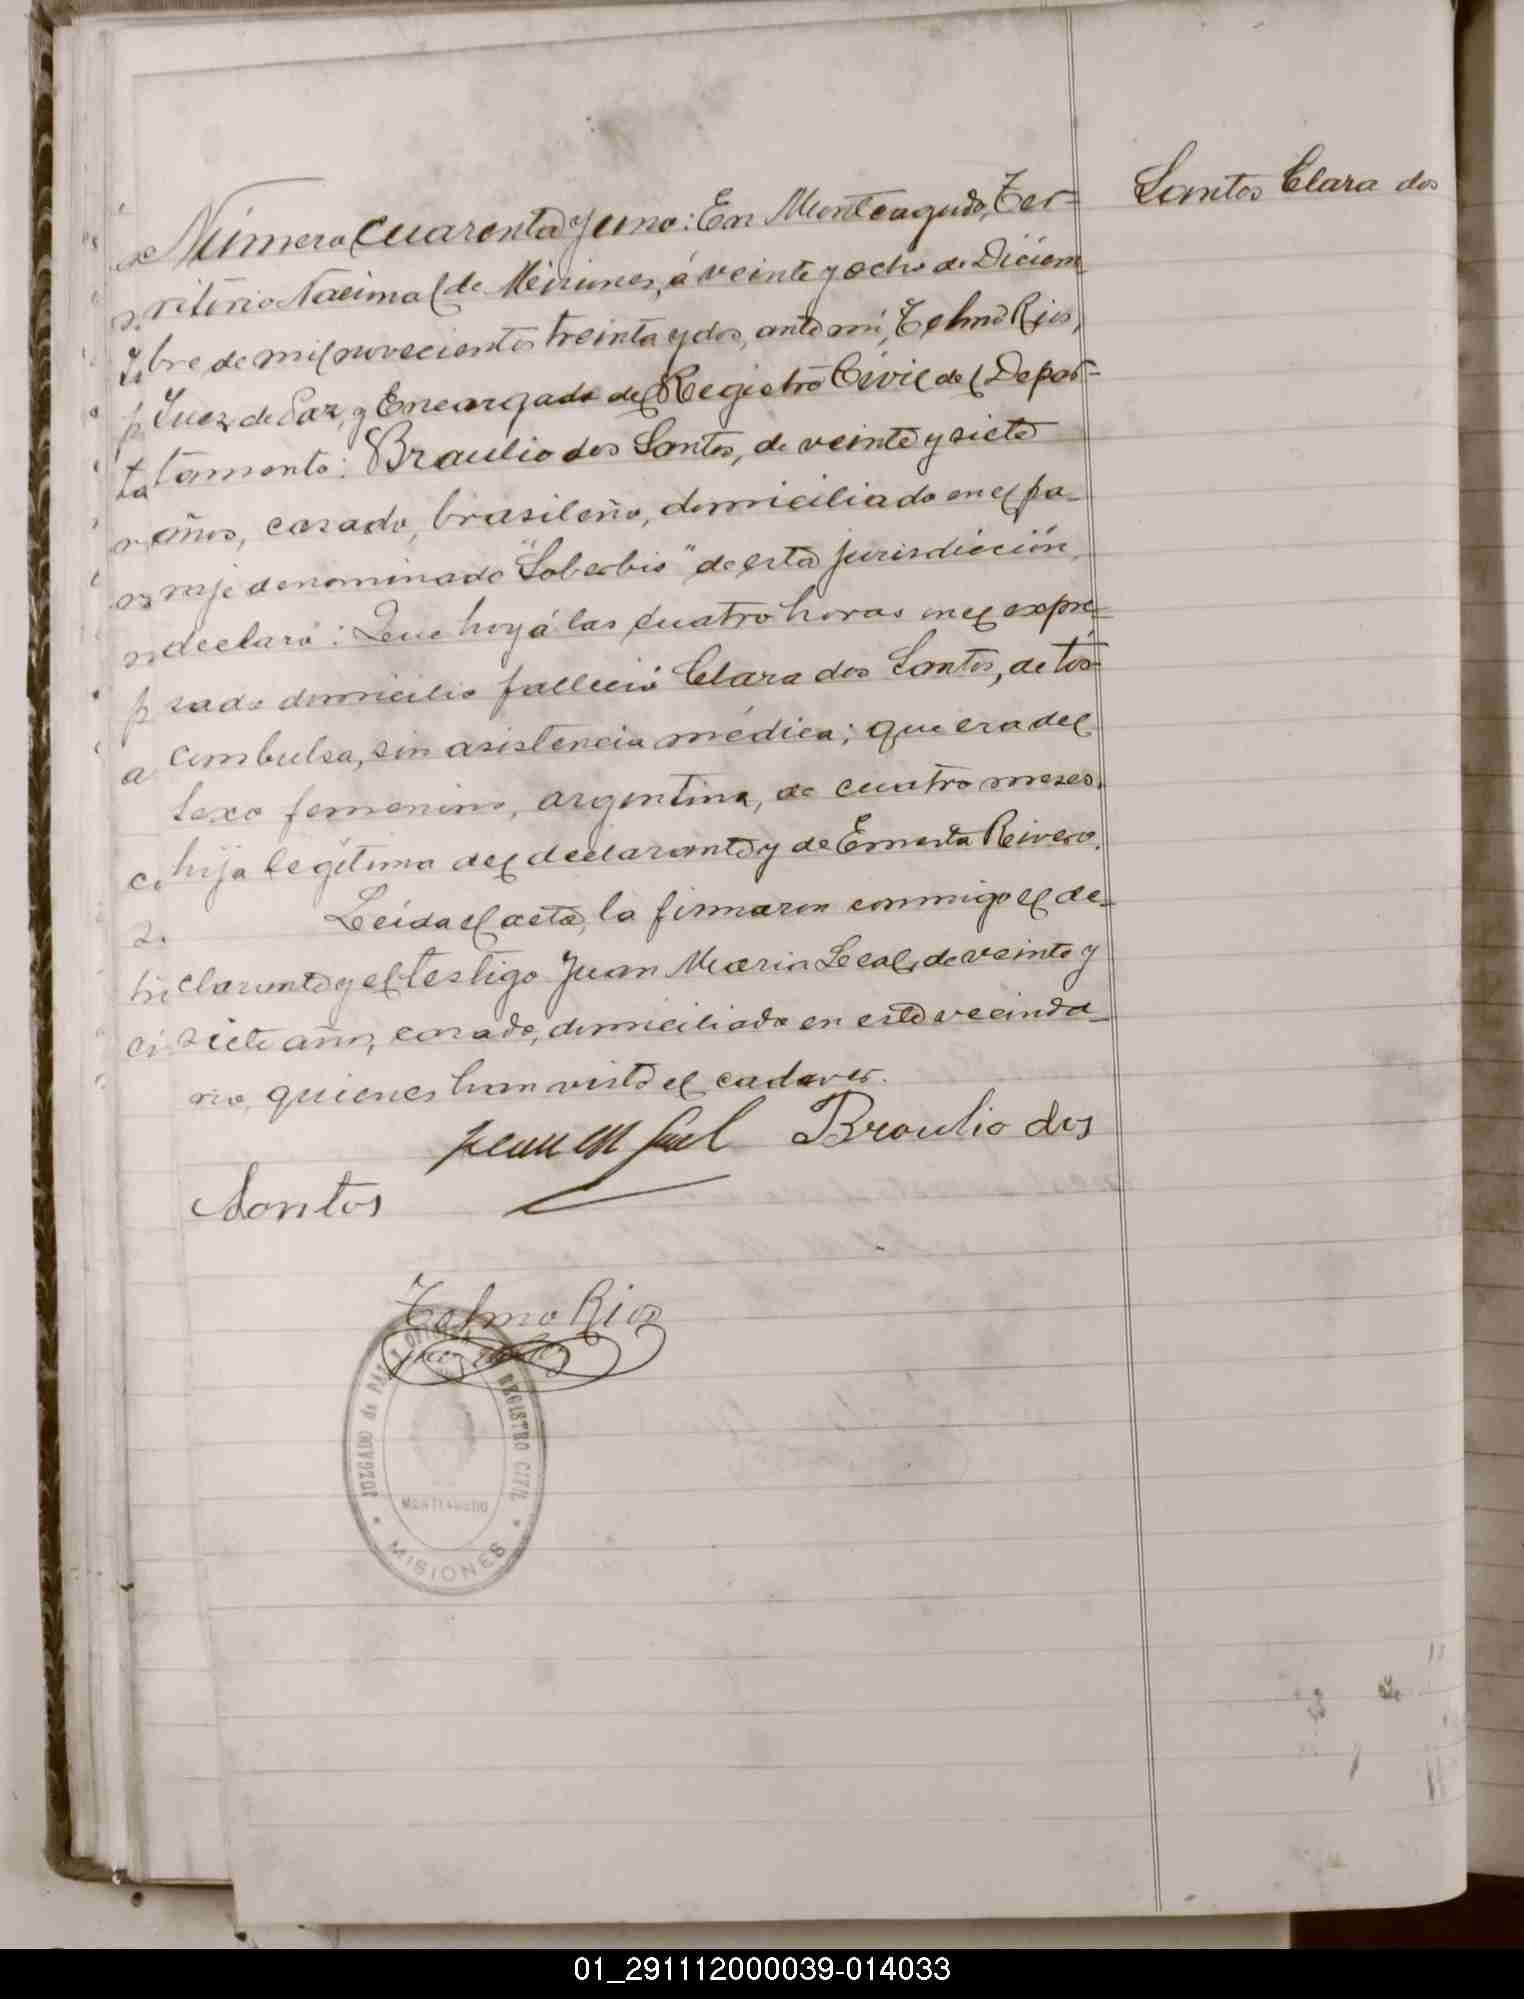 Santos Clara dos
Número cuarenta y uno: En Monteagudo, Ter-
ritorio Nacional de Misiones, á veinte y ocho de Diciem
bre de mil novecientos treinta y dos, ante mí, Telmo Rios,
Juez de Paz, y Encargado del Registro Civil del Depar-
tamento: Braulio dos Santos, de veinte y siete
años, casado, brasileño, domiciliado en el pa-
raje denominado "Soberbio" de esta jurisdicción,
declaró: Que hoy á las cuatro horas en el expre-
sado domicilio falleció Clara dos Santos, de tos
combulsa, sin asistencia médica; que era del
sexo femenino, argentina, de cuatro meses,
hija legítima del declarante y de Ernesta Rivero.
Leída el acta, la firmaron conmigo el de-
clarante y el testigo Juan Maria Leal, de veinte y
siete años, casado, domiciliado en este vecinda-
rio, quienes han visto el cadaver.
Juan M Leal Braulio dos
Santos
Telmo Rios
JUZGADO de PAZ Y REGISTRO CIVIL
MONTEAGUDO
MISIONES
01_291112000039-014033